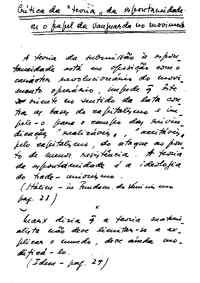 Crítica da "teoria" da espontaneidade
ou o papel da vanguarda no movimento
A teoria da submissão à espon-
taneidade está em oposição com o
carácter revolucionário do movi-
mento operário, impede q̃ êste
se oriente no sentido da luta con-
tra as bases do capitalismo e im-
pele-o para o campo das reivin-
dicações "realizáveis", "aceitáveis"
pelo capitalismo, do ataque ao pon-
to de menos resistência. A teoria
da espontaneidade é a ideologia
do trade-unionismo.
(Staline - in Fundam. do Leninismo
pag. 28)
x
Marx dizia q̃ a teoria materi-
alista não deve limitar-se a ex-
plicar o mundo, deve ainda mo-
dificá-lo.
(Idem - pag. 29)